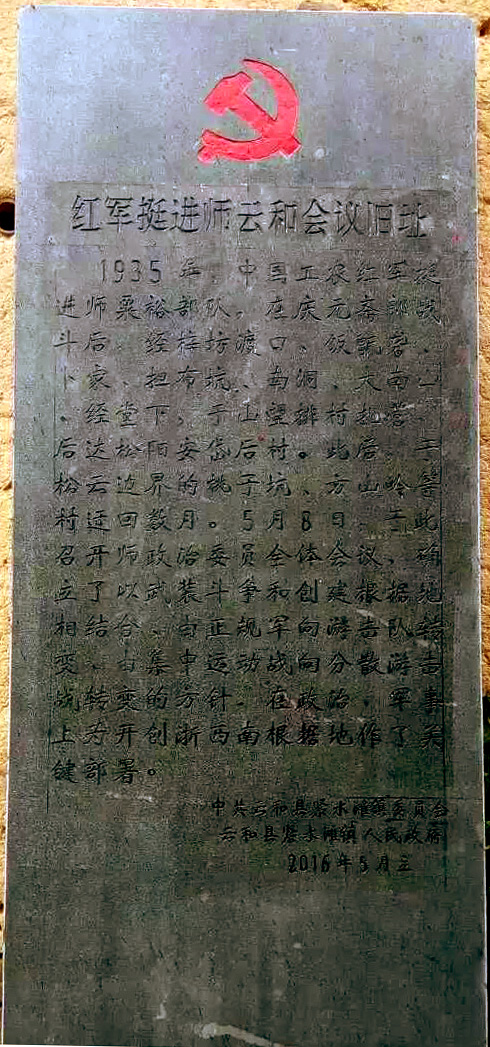 红军挺进师云和会议旧址
1935年,中国工农红军挺
进师粟裕部队,在庆元斋郎战
斗后,经梓坊渡口、饭甑岩、
卜家、担布坑、南洞、大南口
、经堂下,于山望排村扎营。
后达松阳安岱后村。此后,于
松云边界的桃子坑、方山岭等
村迂回数月。5月8日,于此
召开师政治委员全体会议,确
立了以武装斗争和创建根据地
相结合、由正规军向游击队转
变、由集中运动战向分散游击
战转变的方针。在政治,军事
上为开创浙西南根据地作了关
键部署。
中共云和县紧水滩镇委员会
云和县紧水滩镇人民政府
2016年5月立